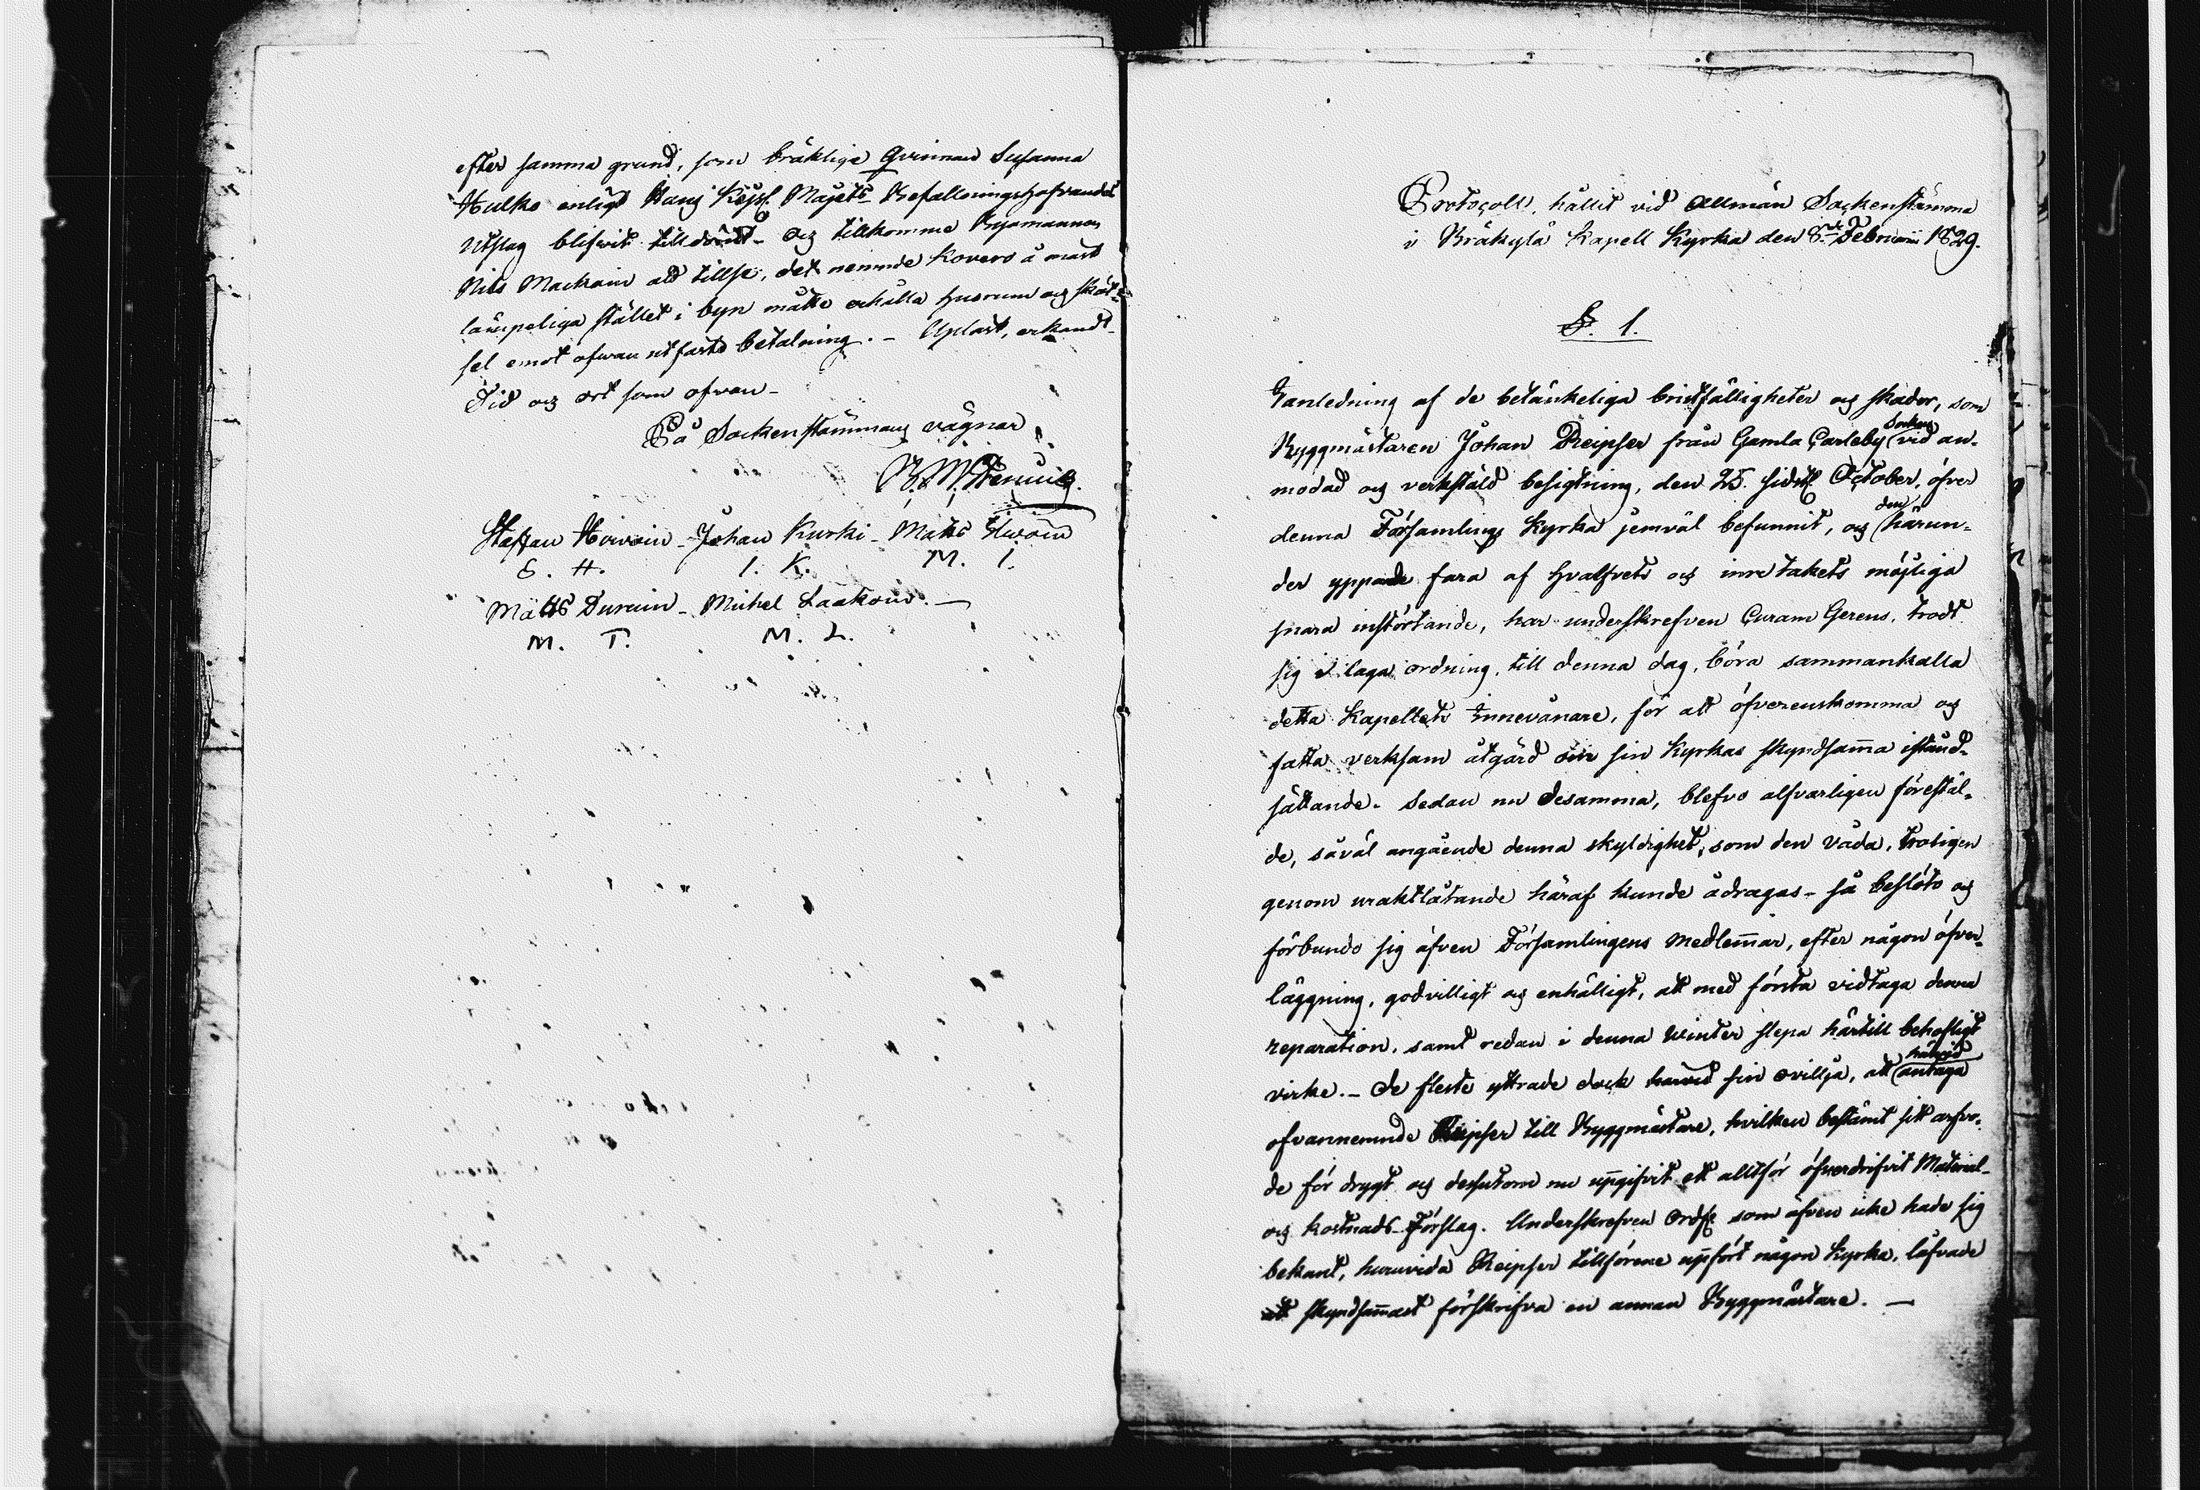 efter samma grund, som bräkliga Qvinnan Susanna
Hulko enligt Hans Kejs. Majts Befallningshafvandes
Utslag blifvit tilldömt. Og tillkomme Byamannen
Nils Mackoin att tillse, det nemnde Kovero å mäst
lämpeliga stället i byn måtte erhålla husrum og sköt-
sel emot ofvan utfäste betalning. – Uplast, erkandt
Tid og ort som ofvan –
På Sockenstämmans vägnar
Staffan Hirvoin – Johan Kurki – Matts
S. H. I. K. M. I.
Matts Turuin – Michel Laakoin. –
M. T. M. L.
Protocoll, hållit vid Allmän Sockenstämma
i Bräkylä Kapell Kyrka den 8de Februarii 1829.
§. 1.
I anledning af de betänkeliga bristfälligheter og skador, som
Byggmästaren Johan Reipser från Gamla Carleby Socken vid an-
modad og verkstäld besigtning, den 25. sidstl. October, öfver
denna Församlings Kyrka jemväl befunnit, og den härun-
der yppade fara af Hvalfvets og inre takets möjliga
snara instörtande, har underskrefven Curam Gerens, trodt
sig i laga ordning, till denna dag, böra sammankalla
detta Kapellets Innevånare, för att öfverenskomma og
fatta verksam åtgärd om sin Kyrkas skyndsam̄a istånd-
sättande. Sedan nu desamma, blefvo alfvarligen förestäl-
de, såväl angående denna skyldighet, som den våda, troligen
genom uraktlåtande häraf kunde ådragas – så beslöto og
förbundo sig äfven Församlingens Medlem̄ar, efter någon öfver-
läggning, godvilligt og enhälligt, att med första vidtaga denna
reparation, samt redan i denna Winter slepa härtill behofligt
virke. – De fleste yttrade dock härvid sin ovillja, att antaga
ofvannemnde Reipser till Byggmästare, hvilken bestämt sitt arfvo-
de för drygt og dessutom nu up̄gifvit ett alltför öfverdrifvit Material-
og Kostnads-Förslag. Underskrefven Ordf. som äfven icke hade sig
bekant, huruvida Reipser tillförene up̄fört någon Kyrka, låfvade
att skyndsam̄ast förskrifva en annan Byggmästare. –